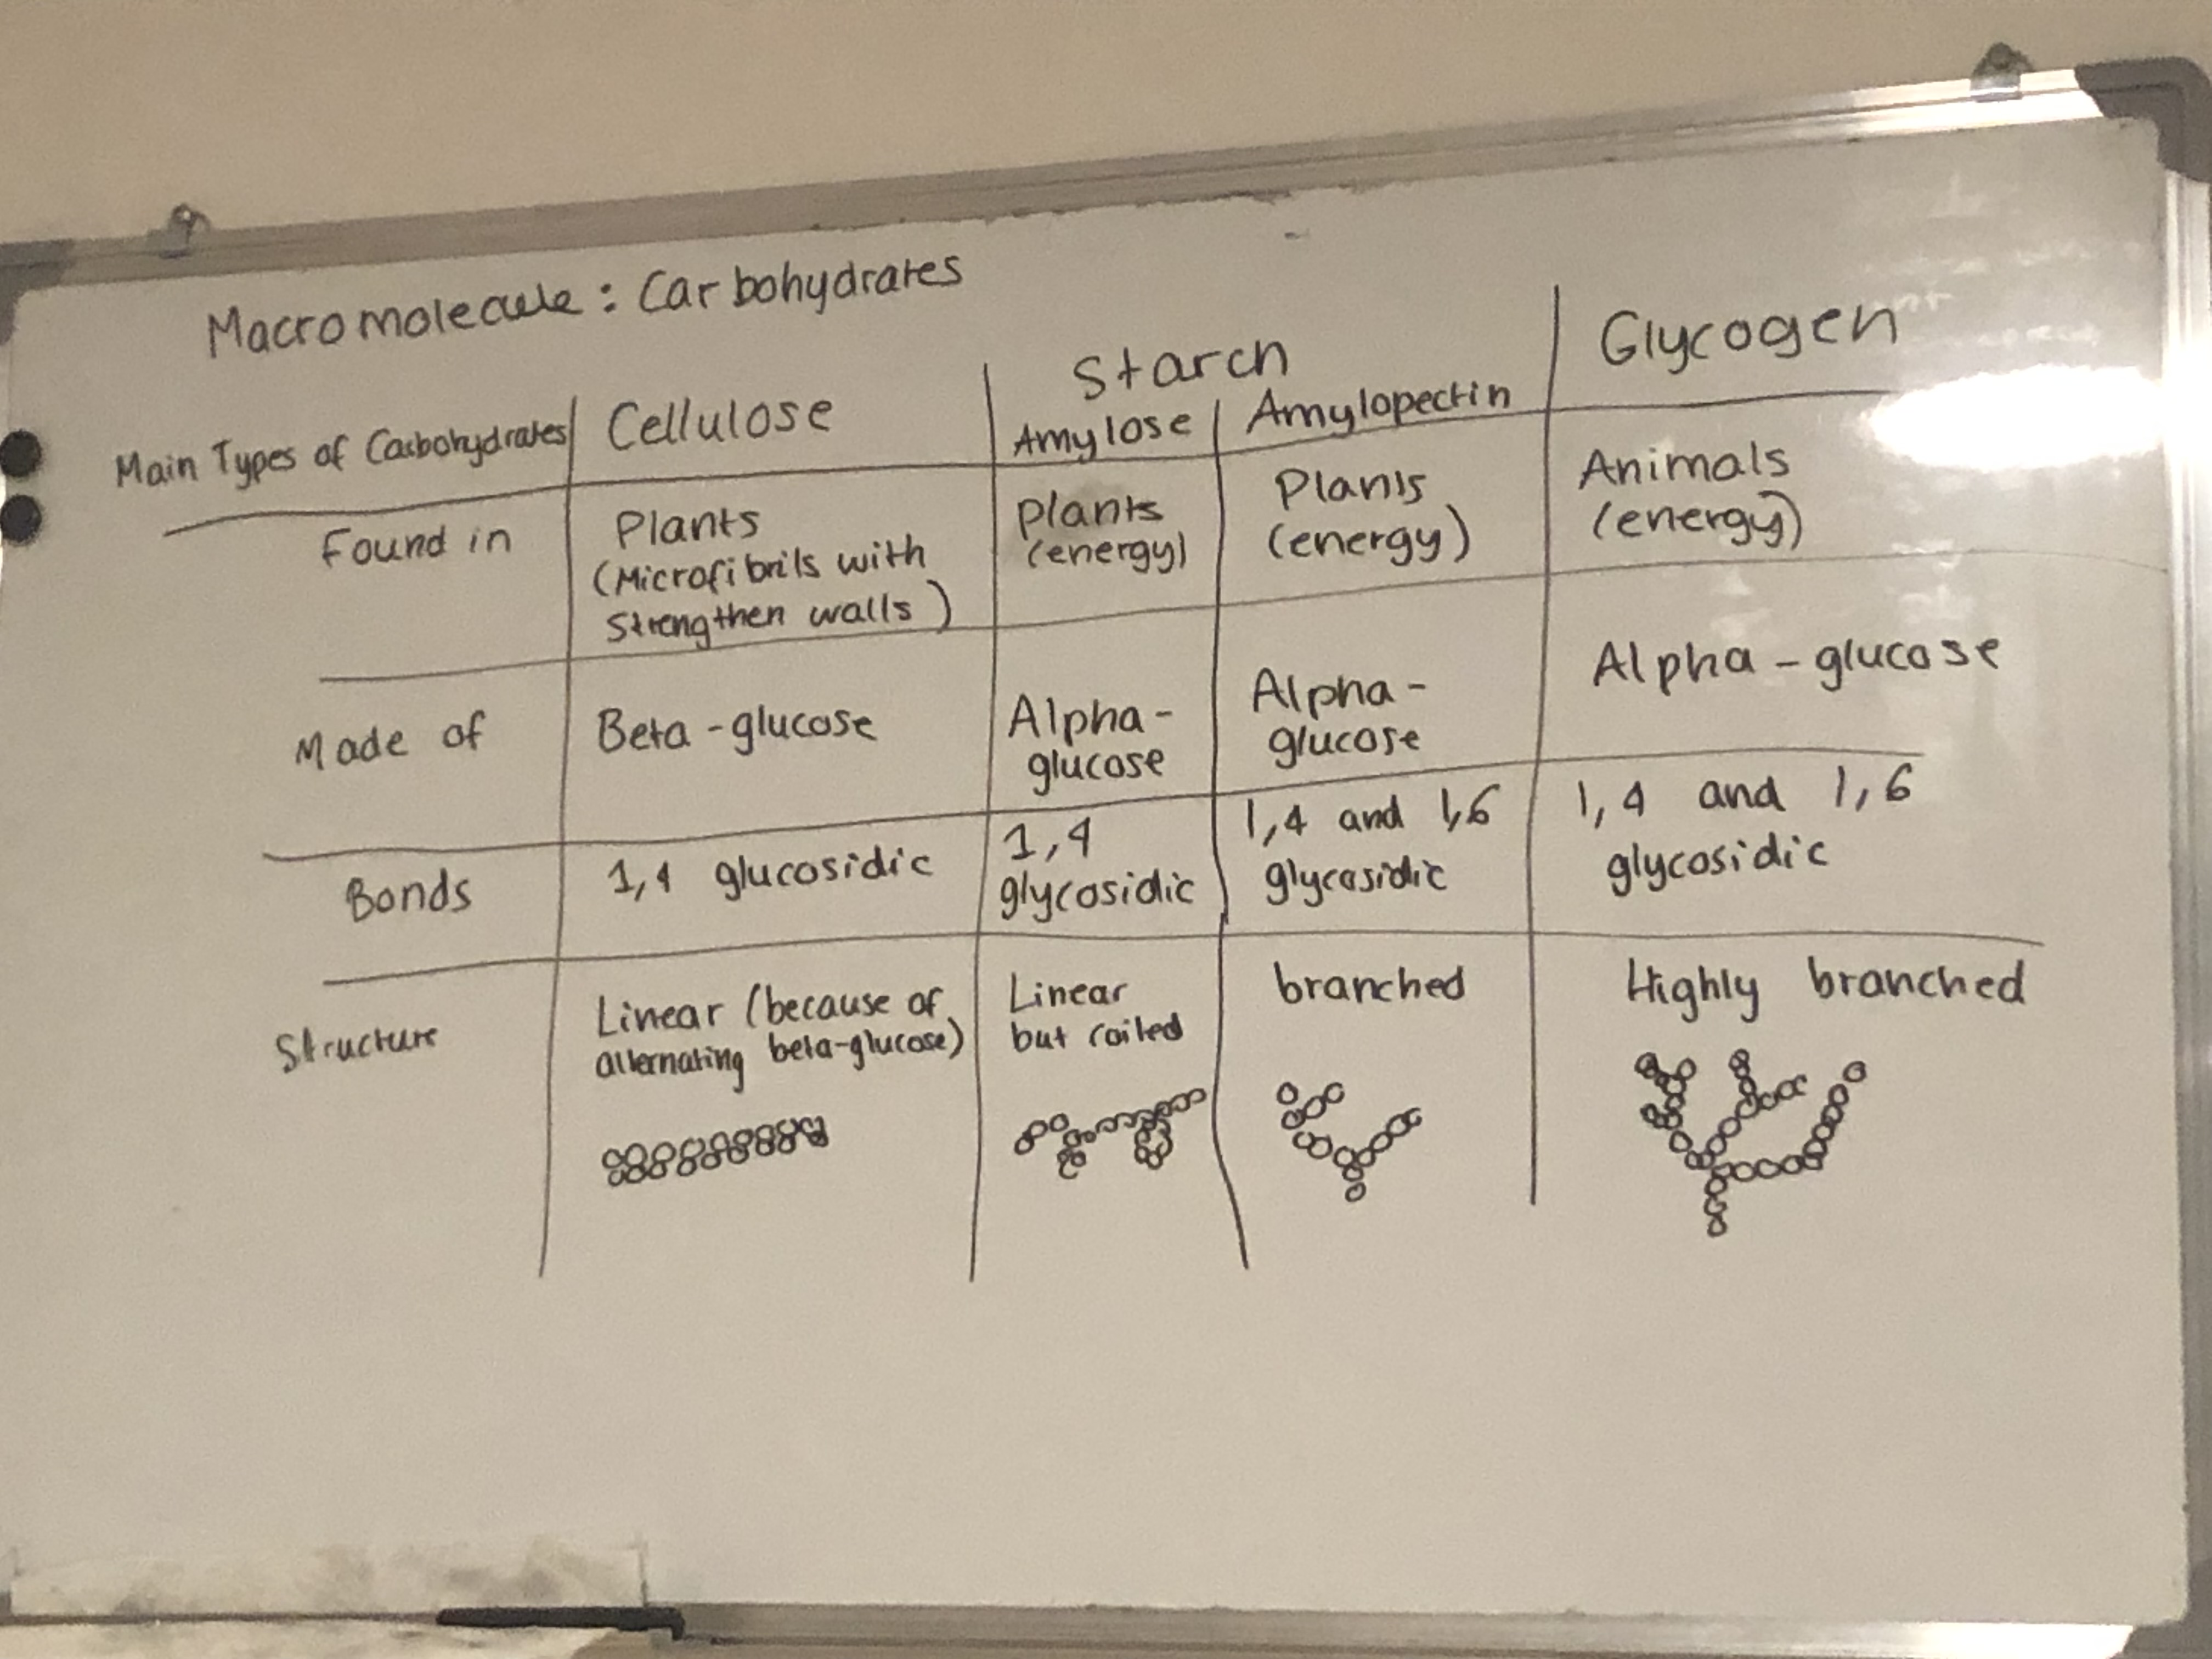 Macromolecule: Carbohydrates
Starch
Glycogen
Main Types of Carbohydrates
Cellulose
Amylose
Amylopectin
Found in
Plants
(Microfibrils with
Strengthen walls)
Plants
(energy)
Plants
(energy)
Animals
(energy)
Made of
Beta-glucose
Alpha-
glucose
Alpha-
glucose
Alpha-glucose
Bonds
1,4 glucosidic
1,4
glycosidic
1,4 and 1,6
glycosidic
1,4 and 1,6
glycosidic
Structure
Linear (because of
alternating beta-glucose)
Linear
but coiled
branched
Highly branched